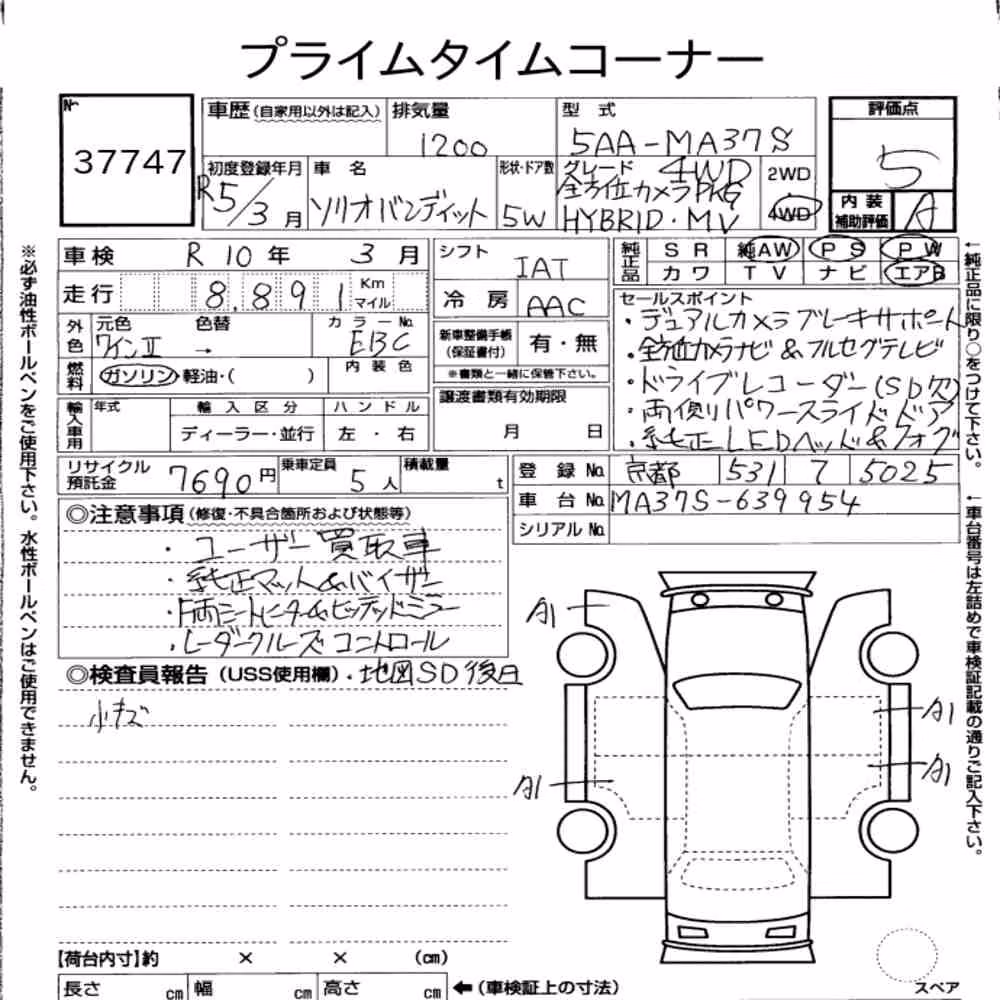 プライムタイムコーナー
№
37747
車歴(自家用以外は記入)
排気量
1200
型 式
5AA-MA37S
評価点
5
内 装
補助評価
A
初度登録年月
R5/3月
車 名
ソリオバンディット
形状・ドア数
5W
グレード 4WD
全方位カメラPKG
HYBRID・MV
2WD
4WD
車検 R 10 年 3 月
走行 8,891 Km マイル
シフト IAT
冷 房 AAC
純正品
S R 純AW P S P W
カワ T V ナビ エアB
外色
元色 色替
ワインⅡ →
カ ラ ー No.
EBC
内 装 色
燃料
ガソリン・軽油・( )
新車整備手帳
(保証書付)
有・無
※書類と一緒に保管下さい。
譲渡書類有効期限
月 日
セールスポイント
・デュアルカメラブレーキサポート
・全方位カメラナビ&フルセグテレビ
・ドライブレコーダー(SD欠)
・両側パワースライドドア
・純正LEDヘッド&フォグ
輸入車用
年式
輸 入 区 分
ディーラー・並行
ハ ン ド ル
左 ・ 右
リサイクル
預託金
7690円
乗車定員
5人
積載量
t
登 録 No. 京都 531 7 5025
車 台 No. MA37S-639954
シリアル No.
◎注意事項(修復・不具合箇所および状態等)
・ユーザー買取車
・純正マット&バイザー
・F両シートヒーター&ビッテッドミラー
・レーダークルーズコントロール
◎検査員報告(USS使用欄)・地図SD後日
小キズ
A1
A1
A1
A1
【荷台内寸】約 × × (cm)
長さ cm 幅 cm 高さ cm ←(車検証上の寸法)
スペア
※必ず油性ボールペンをご使用下さい。水性ボールペンはご使用できません。
←純正品に限り○をつけて下さい。
←車台番号は左詰めで車検証記載の通りご記入下さい。